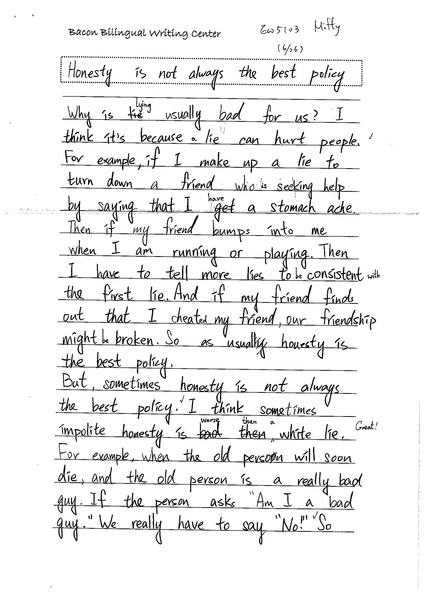 Bacon Bilingual Writing Center
Mitty
(6/26)
Honesty is not always the best policy
lying
Why is lie usually bad for us? I
think it's because a lie can hurt people.
For example, if I make up a lie to
turn down a friend who is seeking help
have
by saying that I get a stomach ache.
Then if my friend bumps into me
when I am running or playing. Then
I have to tell more lies to be consistent with
the first lie. And if my friend finds
out that I cheated my friend, our friendship
might be broken. So as usually honesty is
the best policy.
But, sometimes honesty is not always
the best policy. I think sometimes
worse than a
impolite honesty is bad then white lie. Great!
For example, when the old person will soon
die, and the old person is a really bad
guy. If the person asks "Am I a bad
guy." We really have to say "No!" So